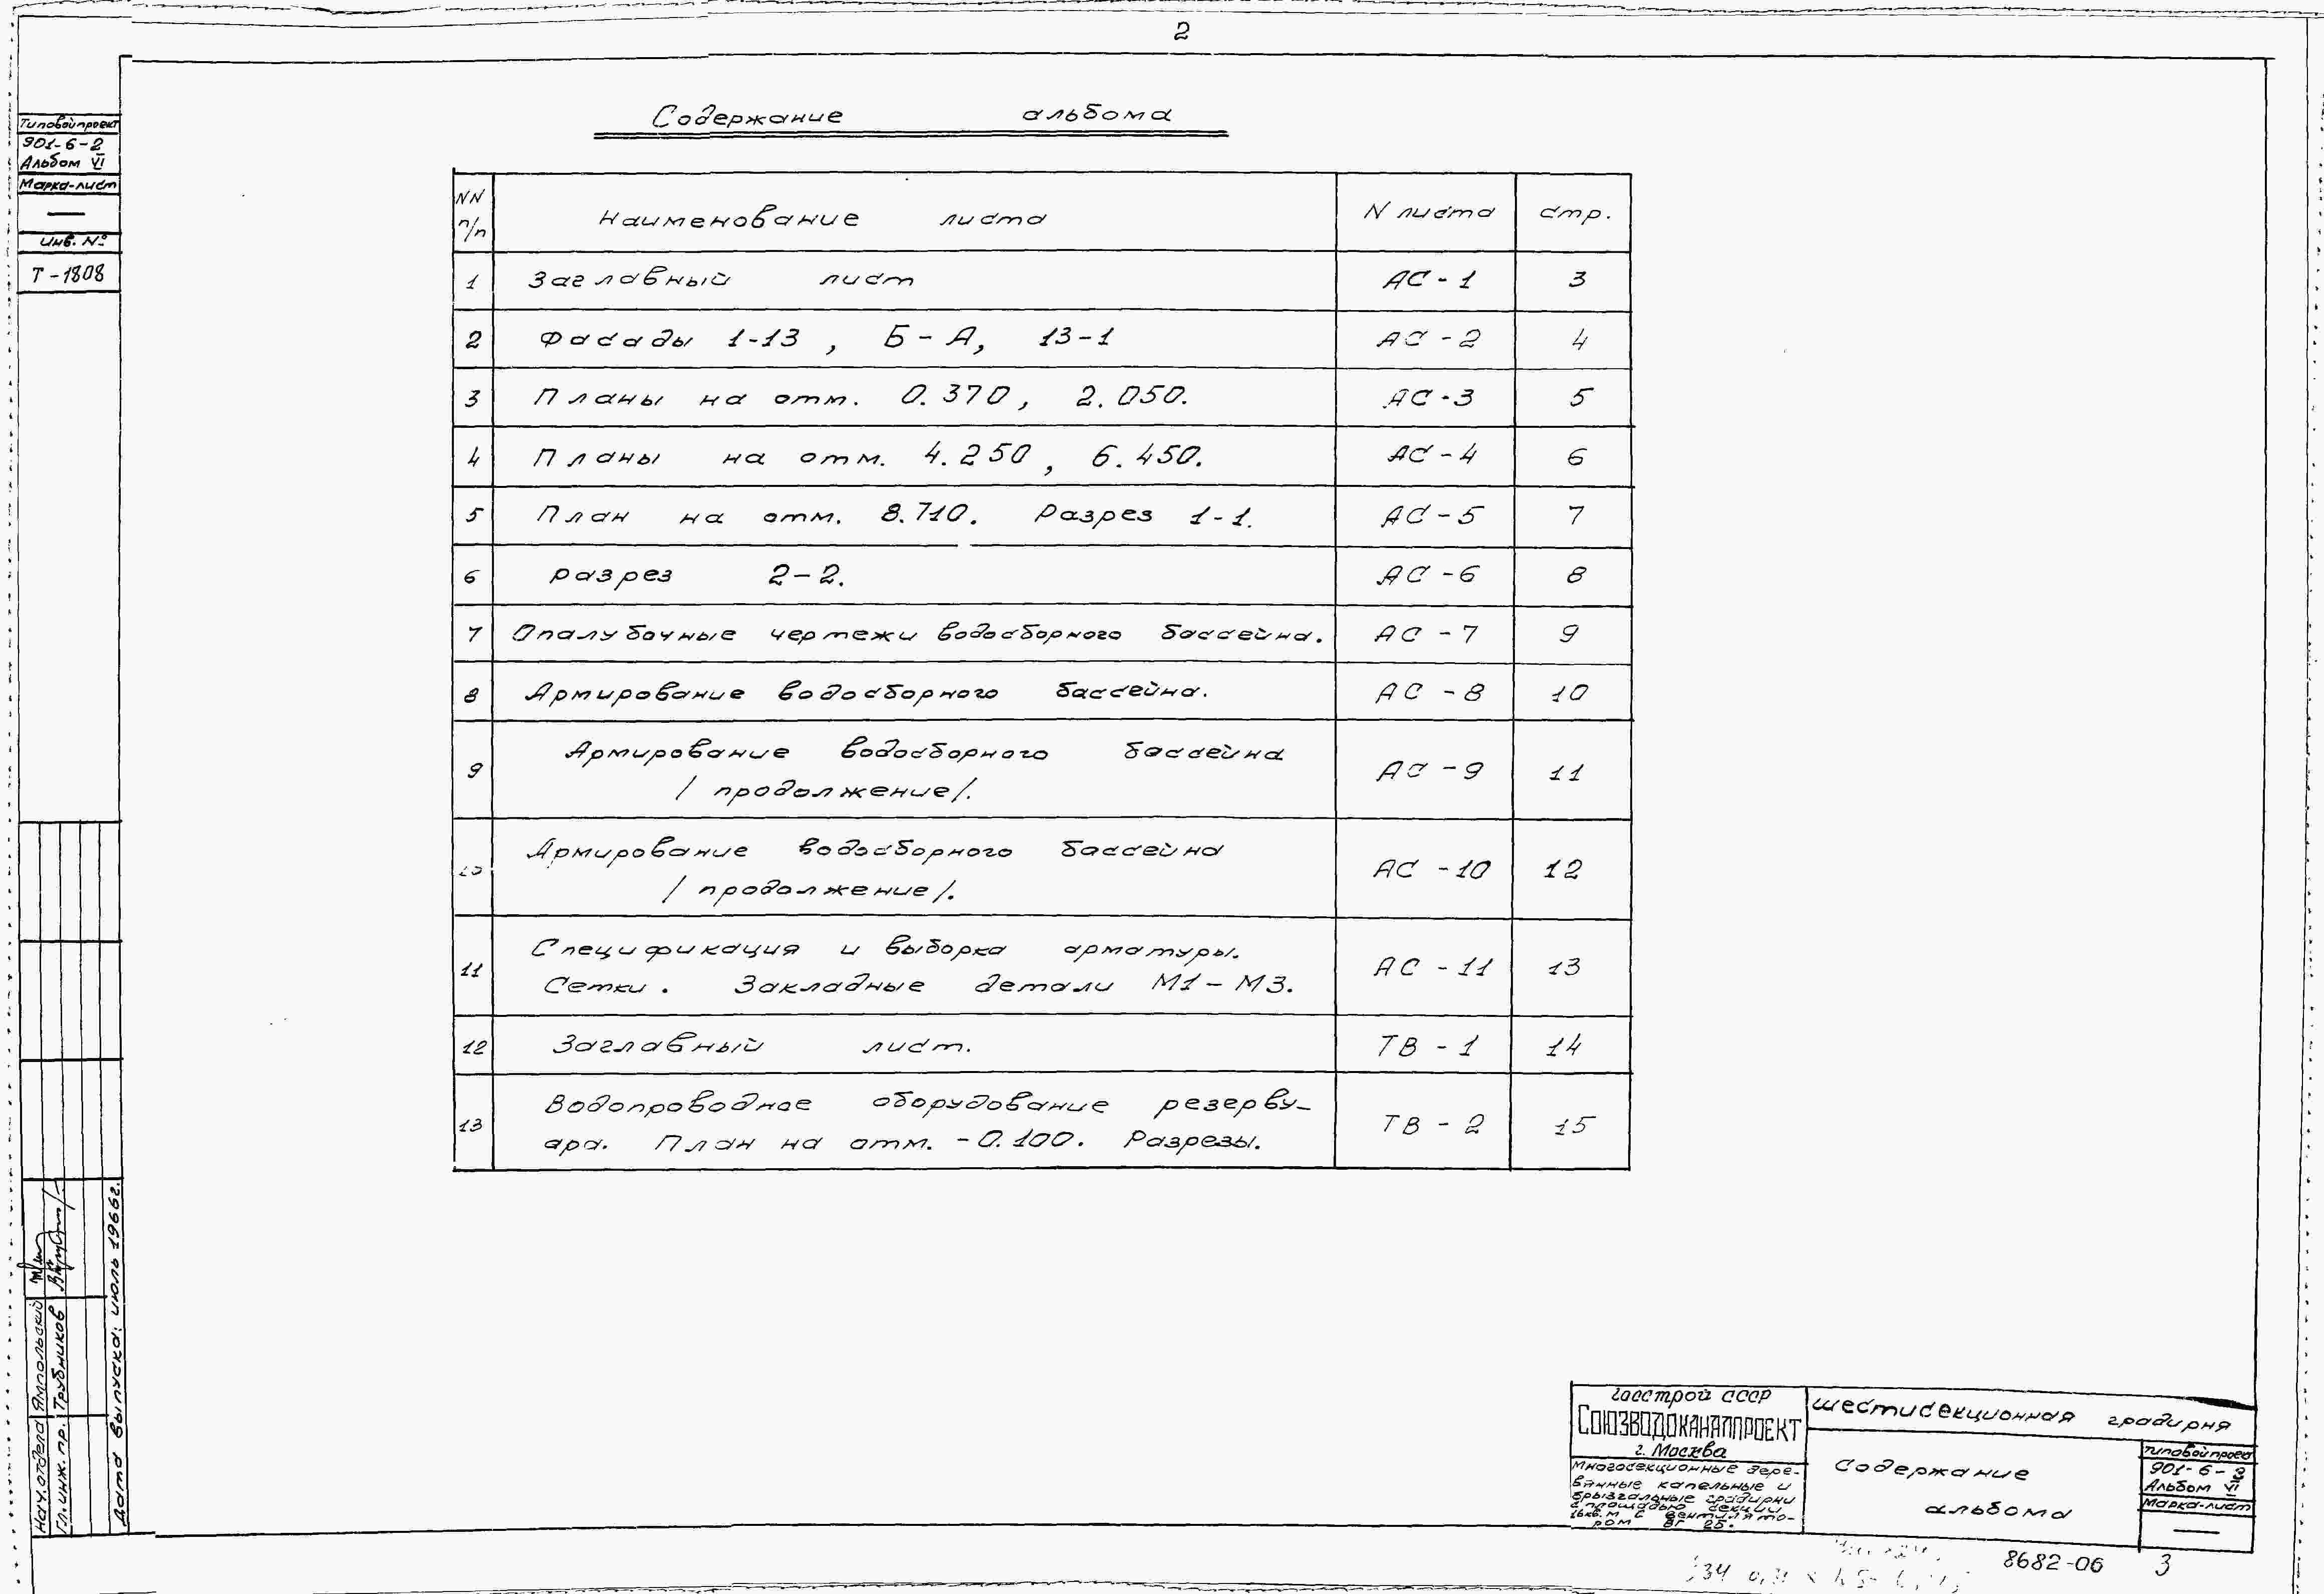 2
Содержание альбома
Типовой проект
901-6-2
Альбом VI
Марка-лист
—
Инв. №
Т-1808
NN п/п Наименование листа N листа стр.
1 Заглавный лист АС-1 3
2 Фасады 1-13, Б-А, 13-1 АС-2 4
3 Планы на отм. 0.370, 2.050. АС-3 5
4 Планы на отм. 4.250, 6.450. АС-4 6
5 План на отм. 8.710. Разрез 1-1. АС-5 7
6 Разрез 2-2. АС-6 8
7 Опалубочные чертежи водосборного бассейна. АС-7 9
8 Армирование водосборного бассейна. АС-8 10
9 Армирование водосборного бассейна АС-9 11
/продолжение/.
10 Армирование водосборного бассейна АС-10 12
/продолжение/.
11 Спецификация и выборка арматуры. АС-11 13
Сетки. Закладные детали М1-М3.
12 Заглавный лист. ТВ-1 14
13 Водопроводное оборудование резерву- ТВ-2 15
ара. План на отм. -0.100. Разрезы.
Нач. отдела Ямпольский
Гл. инж. пр. Трубников
Дата выпуска: июль 1966г.
Госстрой СССР
СОЮЗВОДОКАНАЛПРОЕКТ
г. Москва
Многосекционные дере-
вянные капельные и
брызгальные градирни
с площадью секции
16 кв. м с вентилято-
ром ВГ 25.
Шестисекционная градирня
Содержание
альбома
Типовой проект
901-6-2
Альбом VI
Марка-лист
—
8682-06 3